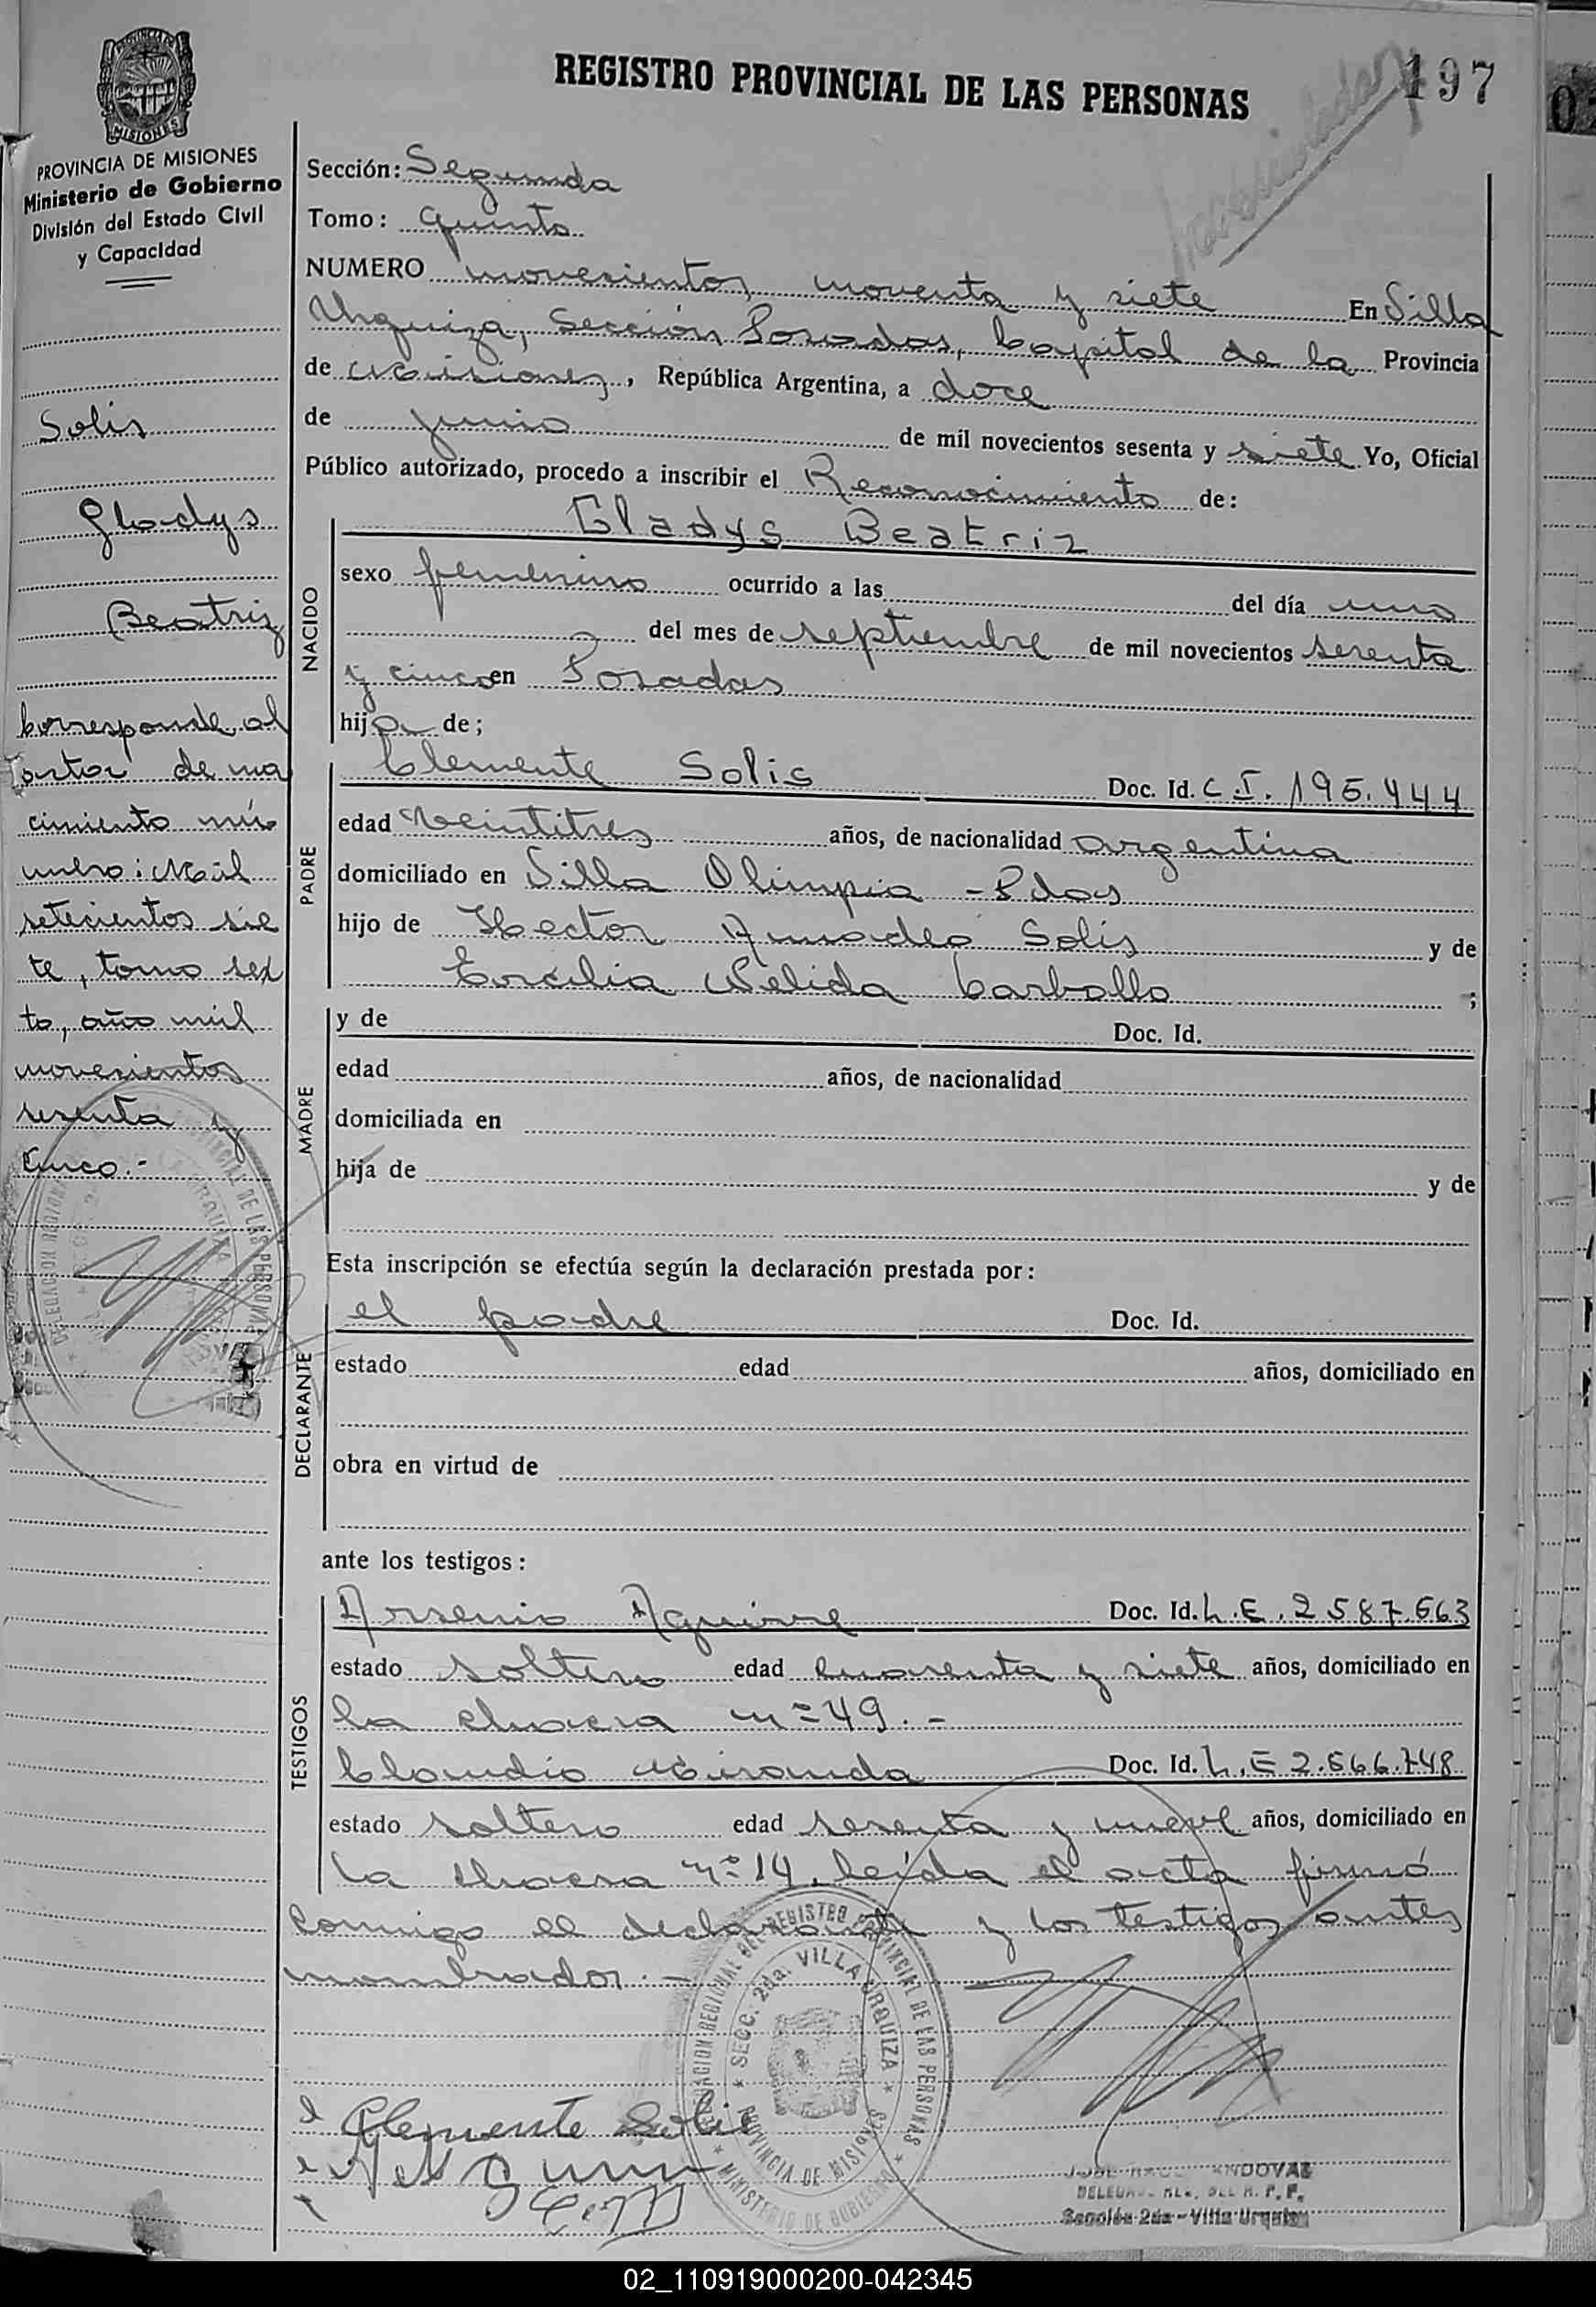 REGISTRO PROVINCIAL DE LAS PERSONAS
197
MISIONES
PROVINCIA DE MISIONES
Ministerio de Gobierno
División del Estado Civil
y Capacidad
Solis
Gladys
Beatriz
Corresponde al
de na
cimiento nú
mero: Mil
setecientos sie
te, tomo sex
to, año mil
novecientos
sesenta y
cinco.-
Sección: Segunda
Tomo: quinto
NUMERO novecientos noventa y siete En Villa
Urquiza, Sección Posadas, Capital de la Provincia
de Misiones, República Argentina, a doce
de junio de mil novecientos sesenta y siete Yo, Oficial
Público autorizado, procedo a inscribir el Reconocimiento de:
NACIDO
Gladys Beatriz
sexo femenino ocurrido a las del día uno
del mes de septiembre de mil novecientos sesenta
y cinco en Posadas
hija de;
PADRE
Clemente Solis Doc. Id. C.I. 195.444
edad veintitres años, de nacionalidad argentina
domiciliado en Villa Olimpia - Pdas
hijo de Hector Amadeo Solis y de
Ercilia Nelida Carballo ;
MADRE
y de Doc. Id.
edad años, de nacionalidad
domiciliada en
hija de y de
Esta inscripción se efectúa según la declaración prestada por:
DECLARANTE
el padre Doc. Id.
estado edad años, domiciliado en
obra en virtud de
ante los testigos:
TESTIGOS
Arsenio Aguirre Doc. Id. L.E. 2587.663
estado soltero edad cuarenta y siete años, domiciliado en
la chacra nº 49.-
Claudio Miranda Doc. Id. L.E 2.566.748
estado soltero edad sesenta y nueve años, domiciliado en
la chacra nº 14. leída el acta firmó
conmigo el declarante y los testigos antes
nombrados.-
DELEGACION REGIONAL DEL REGISTRO PROVINCIAL DE LAS PERSONAS
SECC. 2da. VILLA URQUIZA
PROVINCIA DE MISIONES
MINISTERIO DE GOBIERNO
Clemente Solis
Sección 2da - Villa Urquiza
02_110919000200-042345